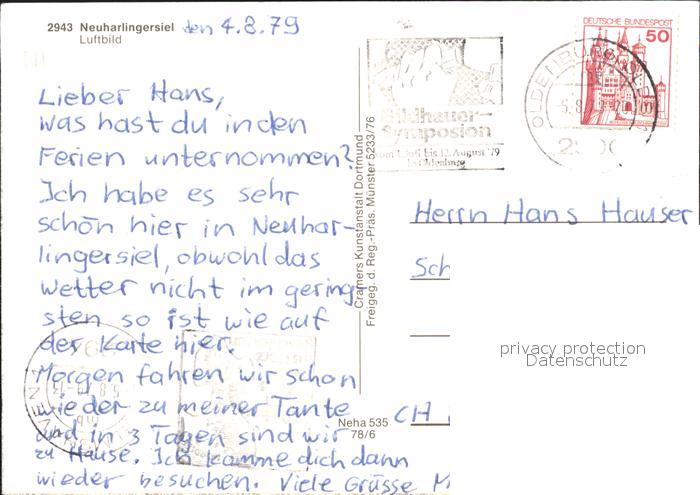 2943 Neuharlingersiel den 4.8.79
Luftbild
Lieber Hans,
was hast du in den
Ferien unternommen?
Ich habe es sehr
schön hier in Neuhar-
lingersiel, obwohl das
Wetter nicht im gering-
sten so ist wie auf
der Karte hier.
Morgen fahren wir schon
wieder zu meiner Tante
und in 3 Tagen sind wir
zu Hause. Ich komme dich dann
wieder besuchen. Viele Grüsse M
Cramers Kunstanstalt Dortmund
Freigeg. d. Reg.-Präs. Münster 5233/76
Neha 535
78/6
Bildhauer-
Symposion
vom 1. Juli bis 12. August '79
in Oldenburg
DEUTSCHE BUNDESPOST
50
OLDENBURG
Herrn Hans Hauser
Sch
CH
privacy protection
Datenschutz